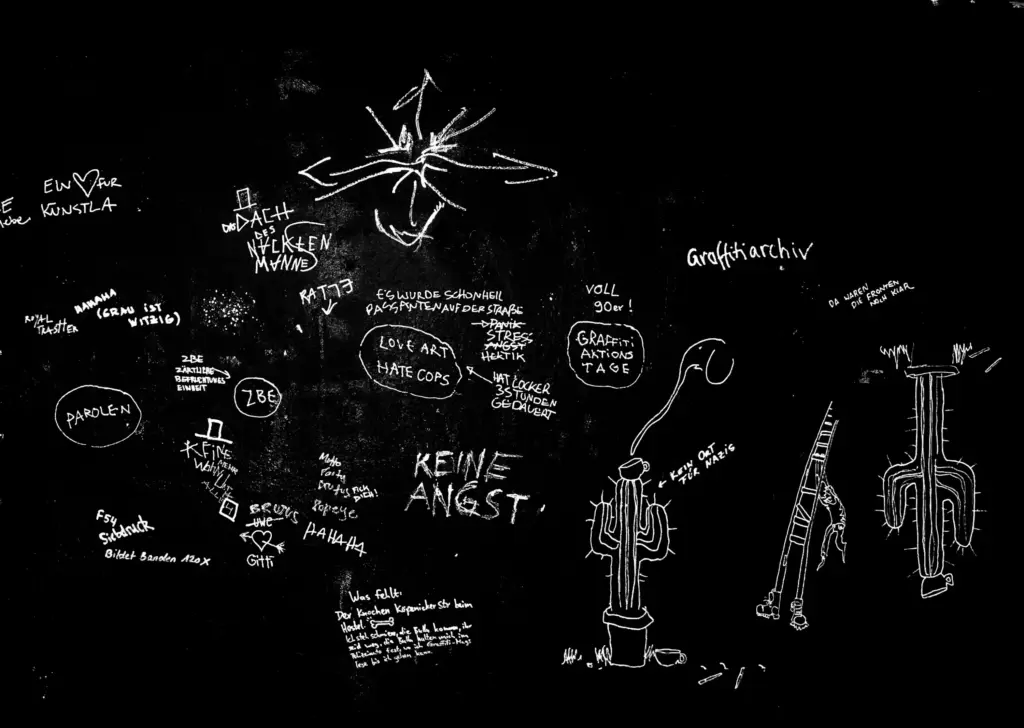 EIN FUR
KUNSTLA
DAS DACH
DES
NACKTEN
MANNES
Graffitiarchiv
HAHAHA
(GRAU IST
WITZIG)
ROYAL
TRASHER
RAT 73
ES WURDE SCHON HEIL
PASSANTEN AUF DER STRAßE
PANIK
STRESS
ANGST
HEKTIK
VOLL
90er!
DA WAREN
DIE FRONTEN
NOCH KLAR
LOVE ART
HATE COPS
HAT LOCKER
3 STUNDEN
GEDAUERT
GRAFFITI
AKTIONS
TAGE
ZBE
ZÄRTLICHE
BEFRUCHTUNGS
EINHEIT
ZBE
PAROLEN
KEINE
KEINE
ANGST
KEIN ORT
FÜR NAZIS
Motto
Party
Brutus
Popeye
HAHAHA
BRUTUS
UWE
Gitti
F54
Siebdruck
Bildet Banden 120x
Was fehlt:
Der Knochen Köpenicker str beim
Hostel